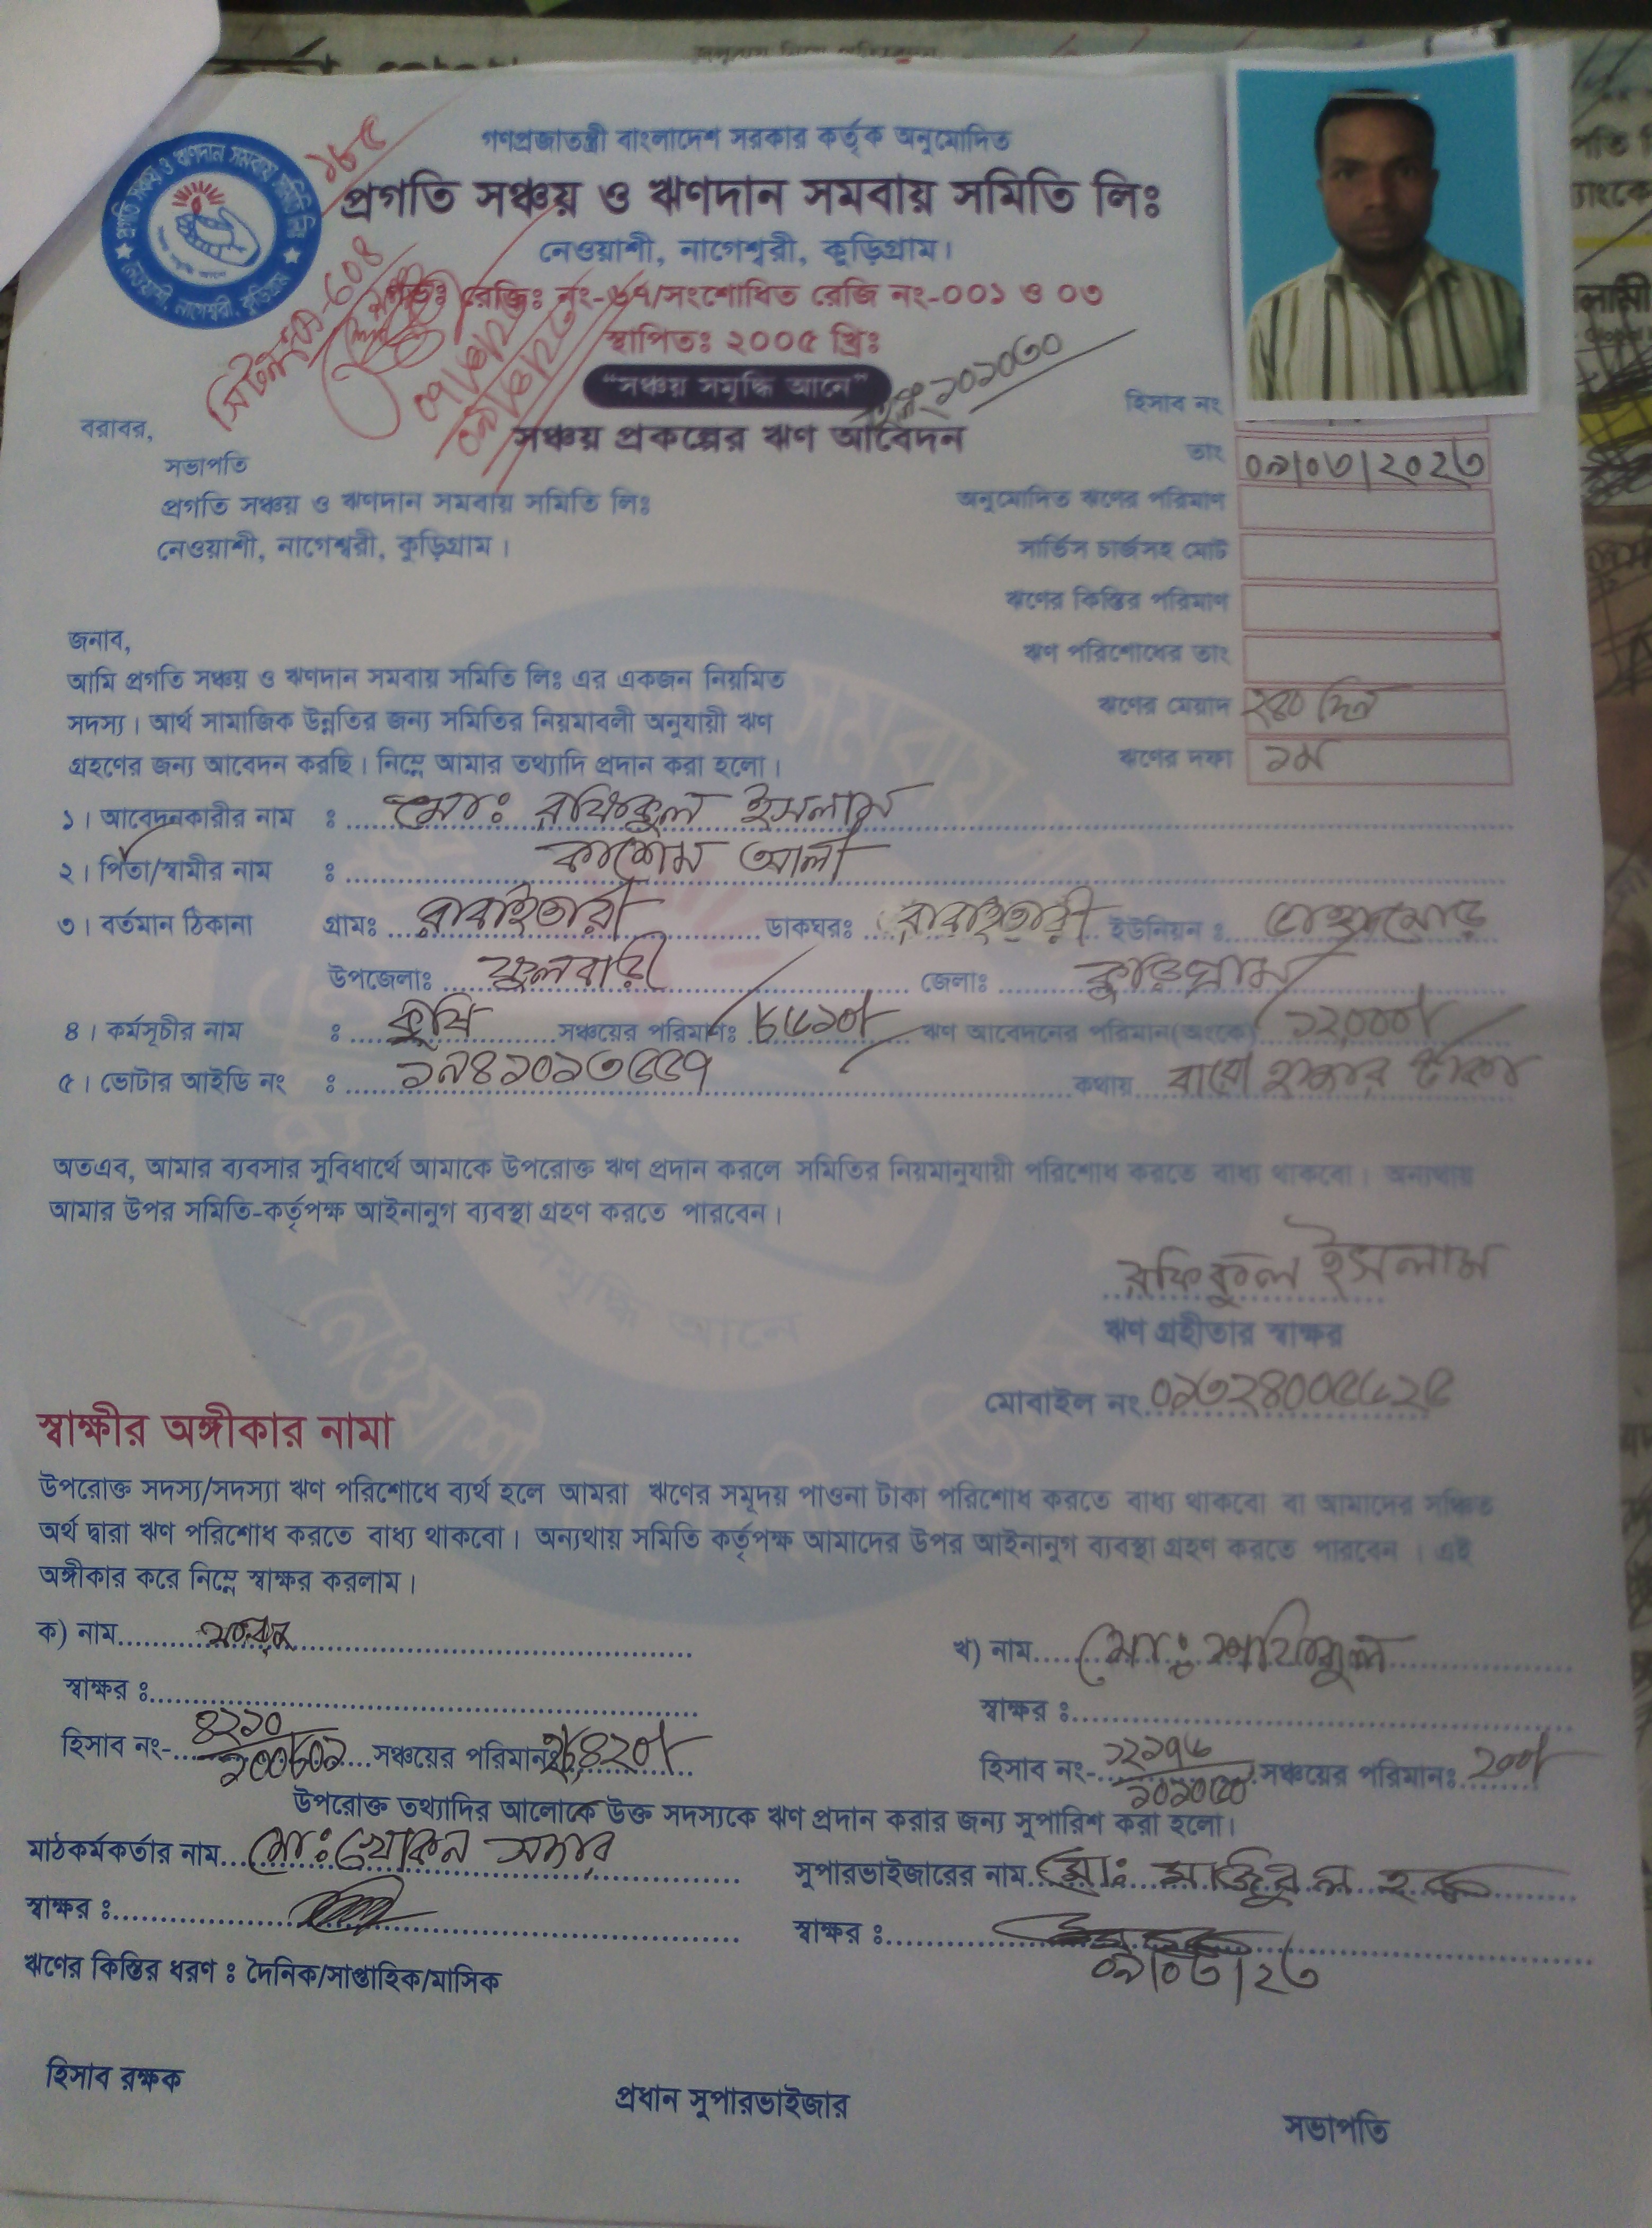 গণপ্রজাতন্ত্রী বাংলাদেশ সরকার কর্তৃক অনুমোদিত
প্রগতি সঞ্চয় ও ঋণদান সমবায় সমিতি লিঃ
নেওয়াশী, নাগেশ্বরী, কুড়িগ্রাম।
রেজিঃ নং-৬৭/সংশোধিত রেজি নং-০০১ ও ০৩
স্থাপিতঃ ২০০৫ খ্রিঃ
“সঞ্চয় সমৃদ্ধি আনে”
১০১০৩০
সঞ্চয় প্রকল্পের ঋণ আবেদন
হিসাব নং
তাং ০৯/০৩/২০২৩
অনুমোদিত ঋণের পরিমাণ
সার্ভিস চার্জসহ মোট
ঋণের কিস্তির পরিমাণ
ঋণ পরিশোধের তাং
ঋণের মেয়াদ ২৪০ দিন
ঋণের দফা ১ম
বরাবর,
সভাপতি
প্রগতি সঞ্চয় ও ঋণদান সমবায় সমিতি লিঃ
নেওয়াশী, নাগেশ্বরী, কুড়িগ্রাম।
জনাব,
আমি প্রগতি সঞ্চয় ও ঋণদান সমবায় সমিতি লিঃ এর একজন নিয়মিত
সদস্য। আর্থ সামাজিক উন্নতির জন্য সমিতির নিয়মাবলী অনুযায়ী ঋণ
গ্রহণের জন্য আবেদন করছি। নিম্নে আমার তথ্যাদি প্রদান করা হলো।
১। আবেদনকারীর নাম : মোঃ রফিকুল ইসলাম
২। পিতা/স্বামীর নাম : কাশেম আলী
৩। বর্তমান ঠিকানা গ্রামঃ রাবাইতারী ডাকঘরঃ রাবাইতারী ইউনিয়ন :
উপজেলাঃ ফুলবাড়ী জেলাঃ কুড়িগ্রাম
৪। কর্মসূচীর নাম : কৃষি সঞ্চয়ের পরিমাণঃ ঋণ আবেদনের পরিমান(অংকে) ১২,০০০/
৫। ভোটার আইডি নং : ১৯৪১০১৩৫৫৭ কথায় বারো হাজার টাকা
অতএব, আমার ব্যবসার সুবিধার্থে আমাকে উপরোক্ত ঋণ প্রদান করলে সমিতির নিয়মানুযায়ী পরিশোধ করতে বাধ্য থাকবো। অন্যথায়
আমার উপর সমিতি-কর্তৃপক্ষ আইনানুগ ব্যবস্থা গ্রহণ করতে পারবেন।
রফিকুল ইসলাম
ঋণ গ্রহীতার স্বাক্ষর
মোবাইল নং
স্বাক্ষীর অঙ্গীকার নামা
উপরোক্ত সদস্য/সদস্যা ঋণ পরিশোধে ব্যর্থ হলে আমরা ঋণের সমূদয় পাওনা টাকা পরিশোধ করতে বাধ্য থাকবো বা আমাদের সঞ্চিত
অর্থ দ্বারা ঋণ পরিশোধ করতে বাধ্য থাকবো। অন্যথায় সমিতি কর্তৃপক্ষ আমাদের উপর আইনানুগ ব্যবস্থা গ্রহণ করতে পারবেন। এই
অঙ্গীকার করে নিম্নে স্বাক্ষর করলাম।
ক) নাম
স্বাক্ষর :
হিসাব নং- ৪২১০ সঞ্চয়ের পরিমানঃ
খ) নাম মোঃ
স্বাক্ষর :
হিসাব নং- ১২১৭৬ সঞ্চয়ের পরিমানঃ ২০০/
উপরোক্ত তথ্যাদির আলোকে উক্ত সদস্যকে ঋণ প্রদান করার জন্য সুপারিশ করা হলো।
মাঠকর্মকর্তার নাম মোঃ খোকন সরদার
স্বাক্ষর :
সুপারভাইজারের নাম মোঃ
স্বাক্ষর :
০৯/০৩/২৩
ঋণের কিস্তির ধরণ : দৈনিক/সাপ্তাহিক/মাসিক
হিসাব রক্ষক
প্রধান সুপারভাইজার
সভাপতি